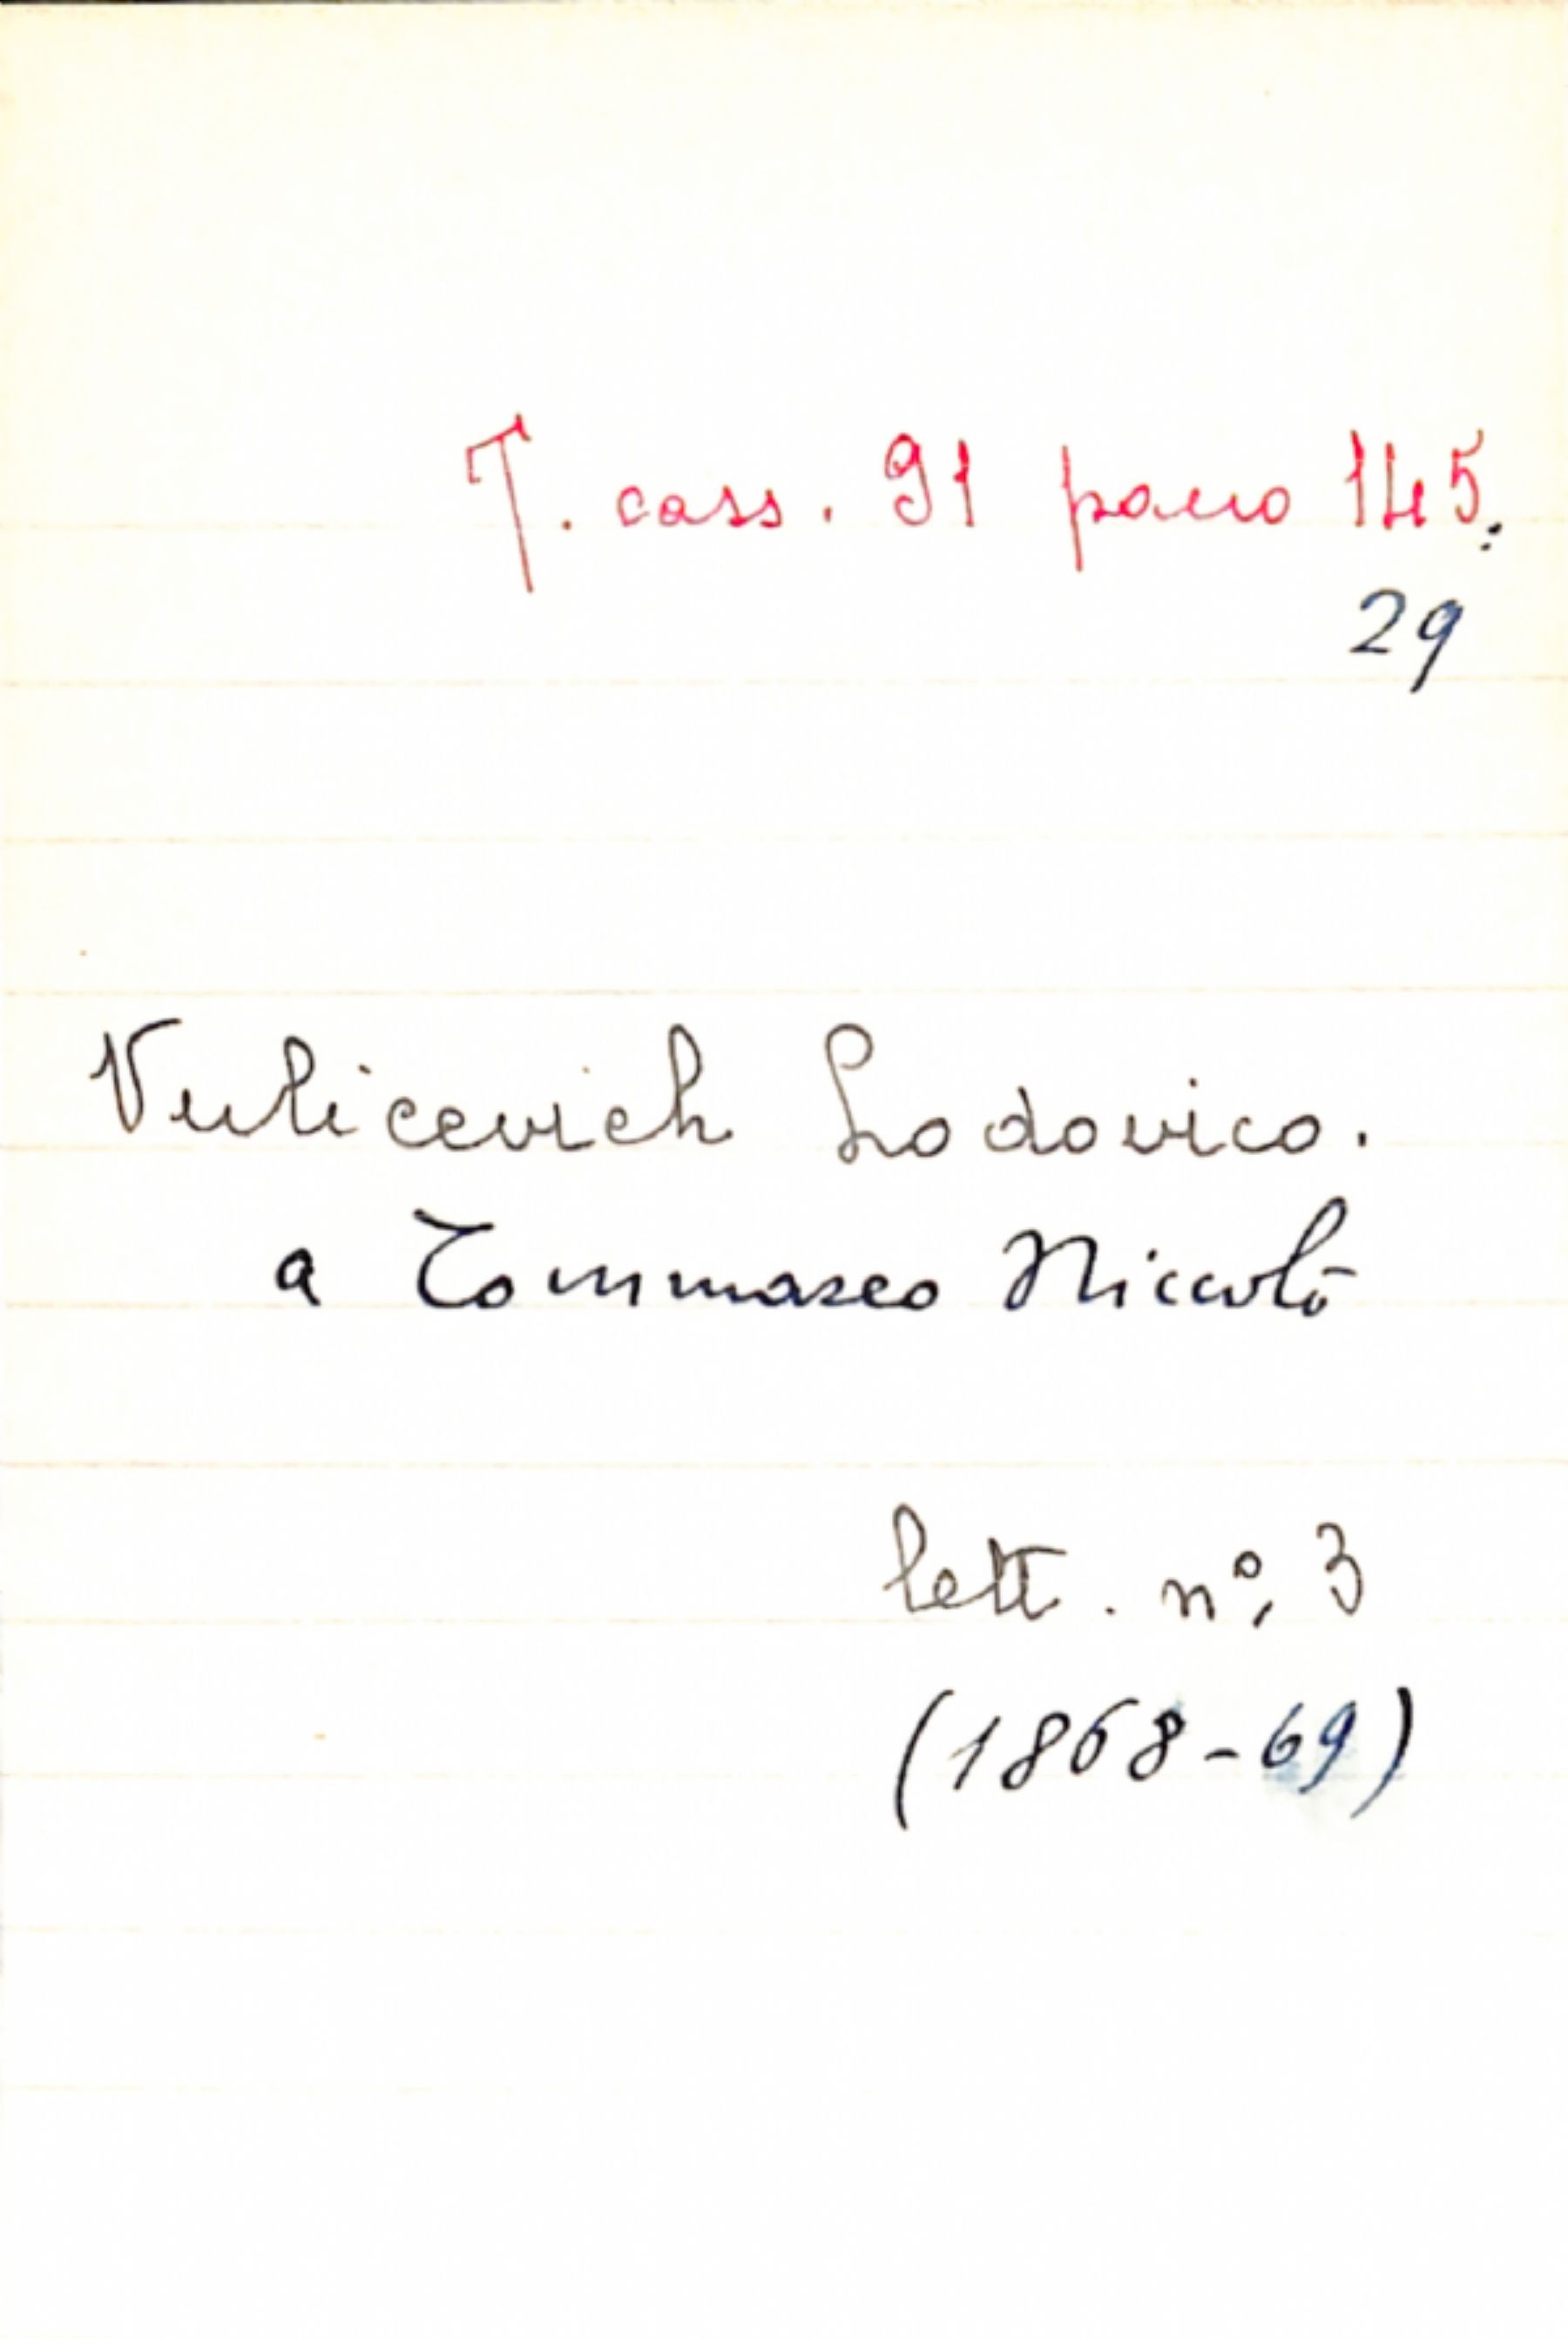 T. cass. 91 pacco 145.
29
Vulicevich Lodovico.
a Tommaseo Niccolò
lett. nº, 3
(1868-69)